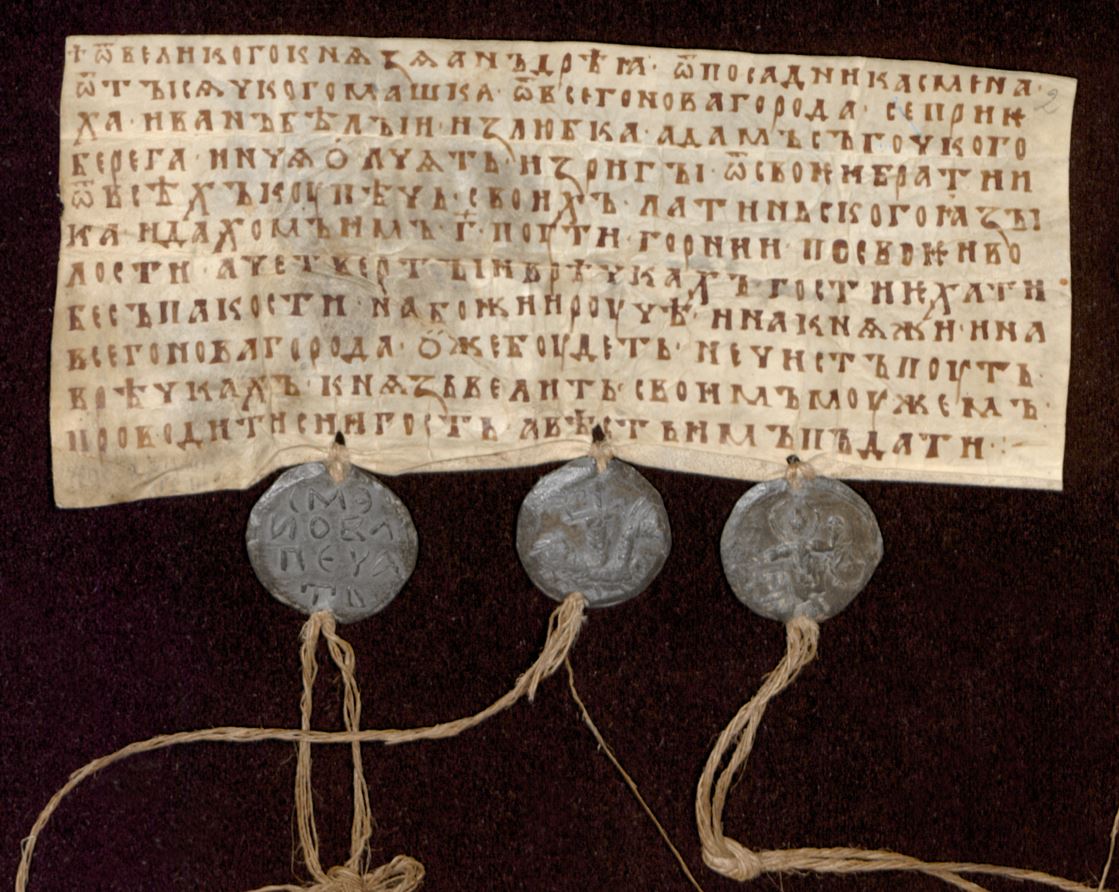 + ѿ великого кнѧзѧ анъдрѣꙗ · ѿ посадника смена ·
ѿ тысѧчкого машкѧ · ѿ всего новагорода · се приѥ
ха · иванъ бѣлыи · из любка · адамъ съ гочкого
берега · инчѧ ѡлчѧтъ · из ригы · ѿ своиѥи братии
ѿ всѣхъ коупѣчь · своихъ · латиньского ꙗзы
ка · и дахомъ имъ · г҃ · поути · горнии · по своѥи во
лости · а четверты и в рѣчкахъ гости ѥхати
бес пакости · на божии роучѣ · и на кнѧжи · и на
всего новагорода · ѡже боудеть · не чистъ поуть ·
в рѣчкахъ · кнѧзь велить · своимъ моужемъ ·
проводити сии гость а вѣсть имъ пъдати ·:–
2
СМЭ
НОВА
ПЕЧА
ТЬ